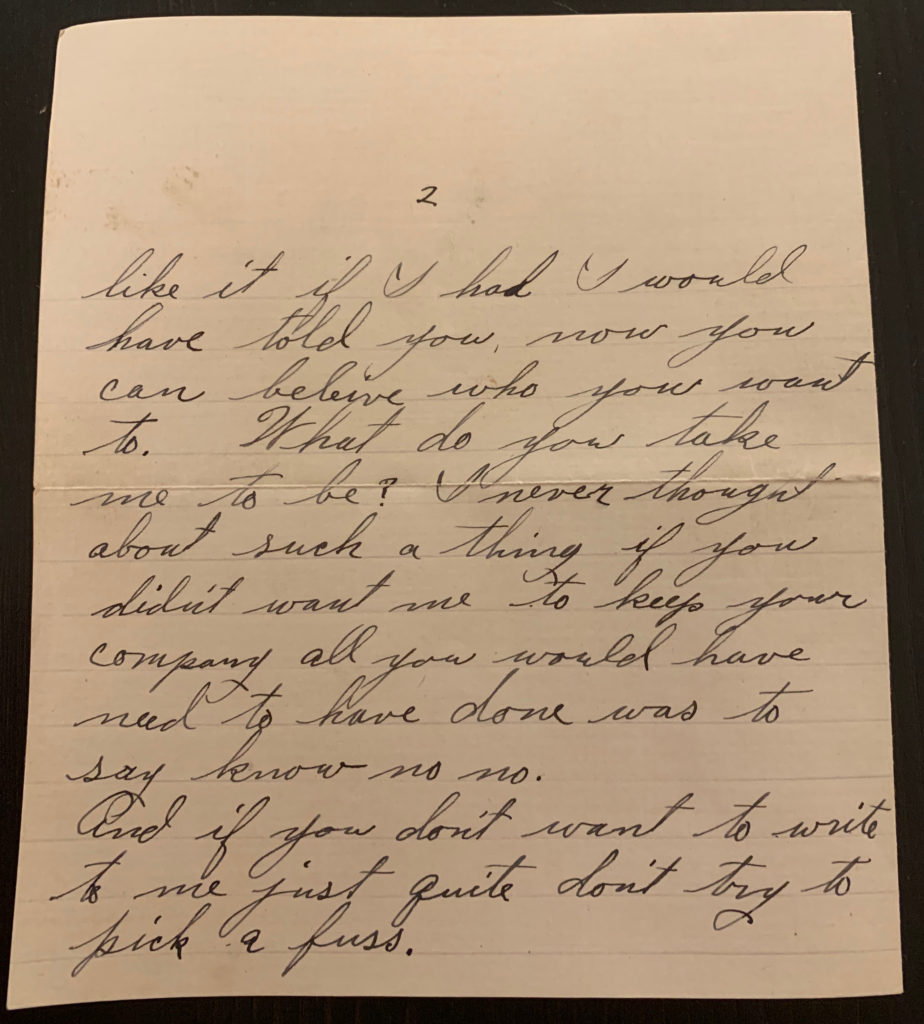 2
like it if I had I would
have told you, now you
can beleive who you want
to. What do you take
me to be? I never thought
about such a thing if you
didn't want me to keep your
company all you would have
need to have done was to
say know no no.
And if you don't want to write
to me just quite don't try to
pick a fuss.